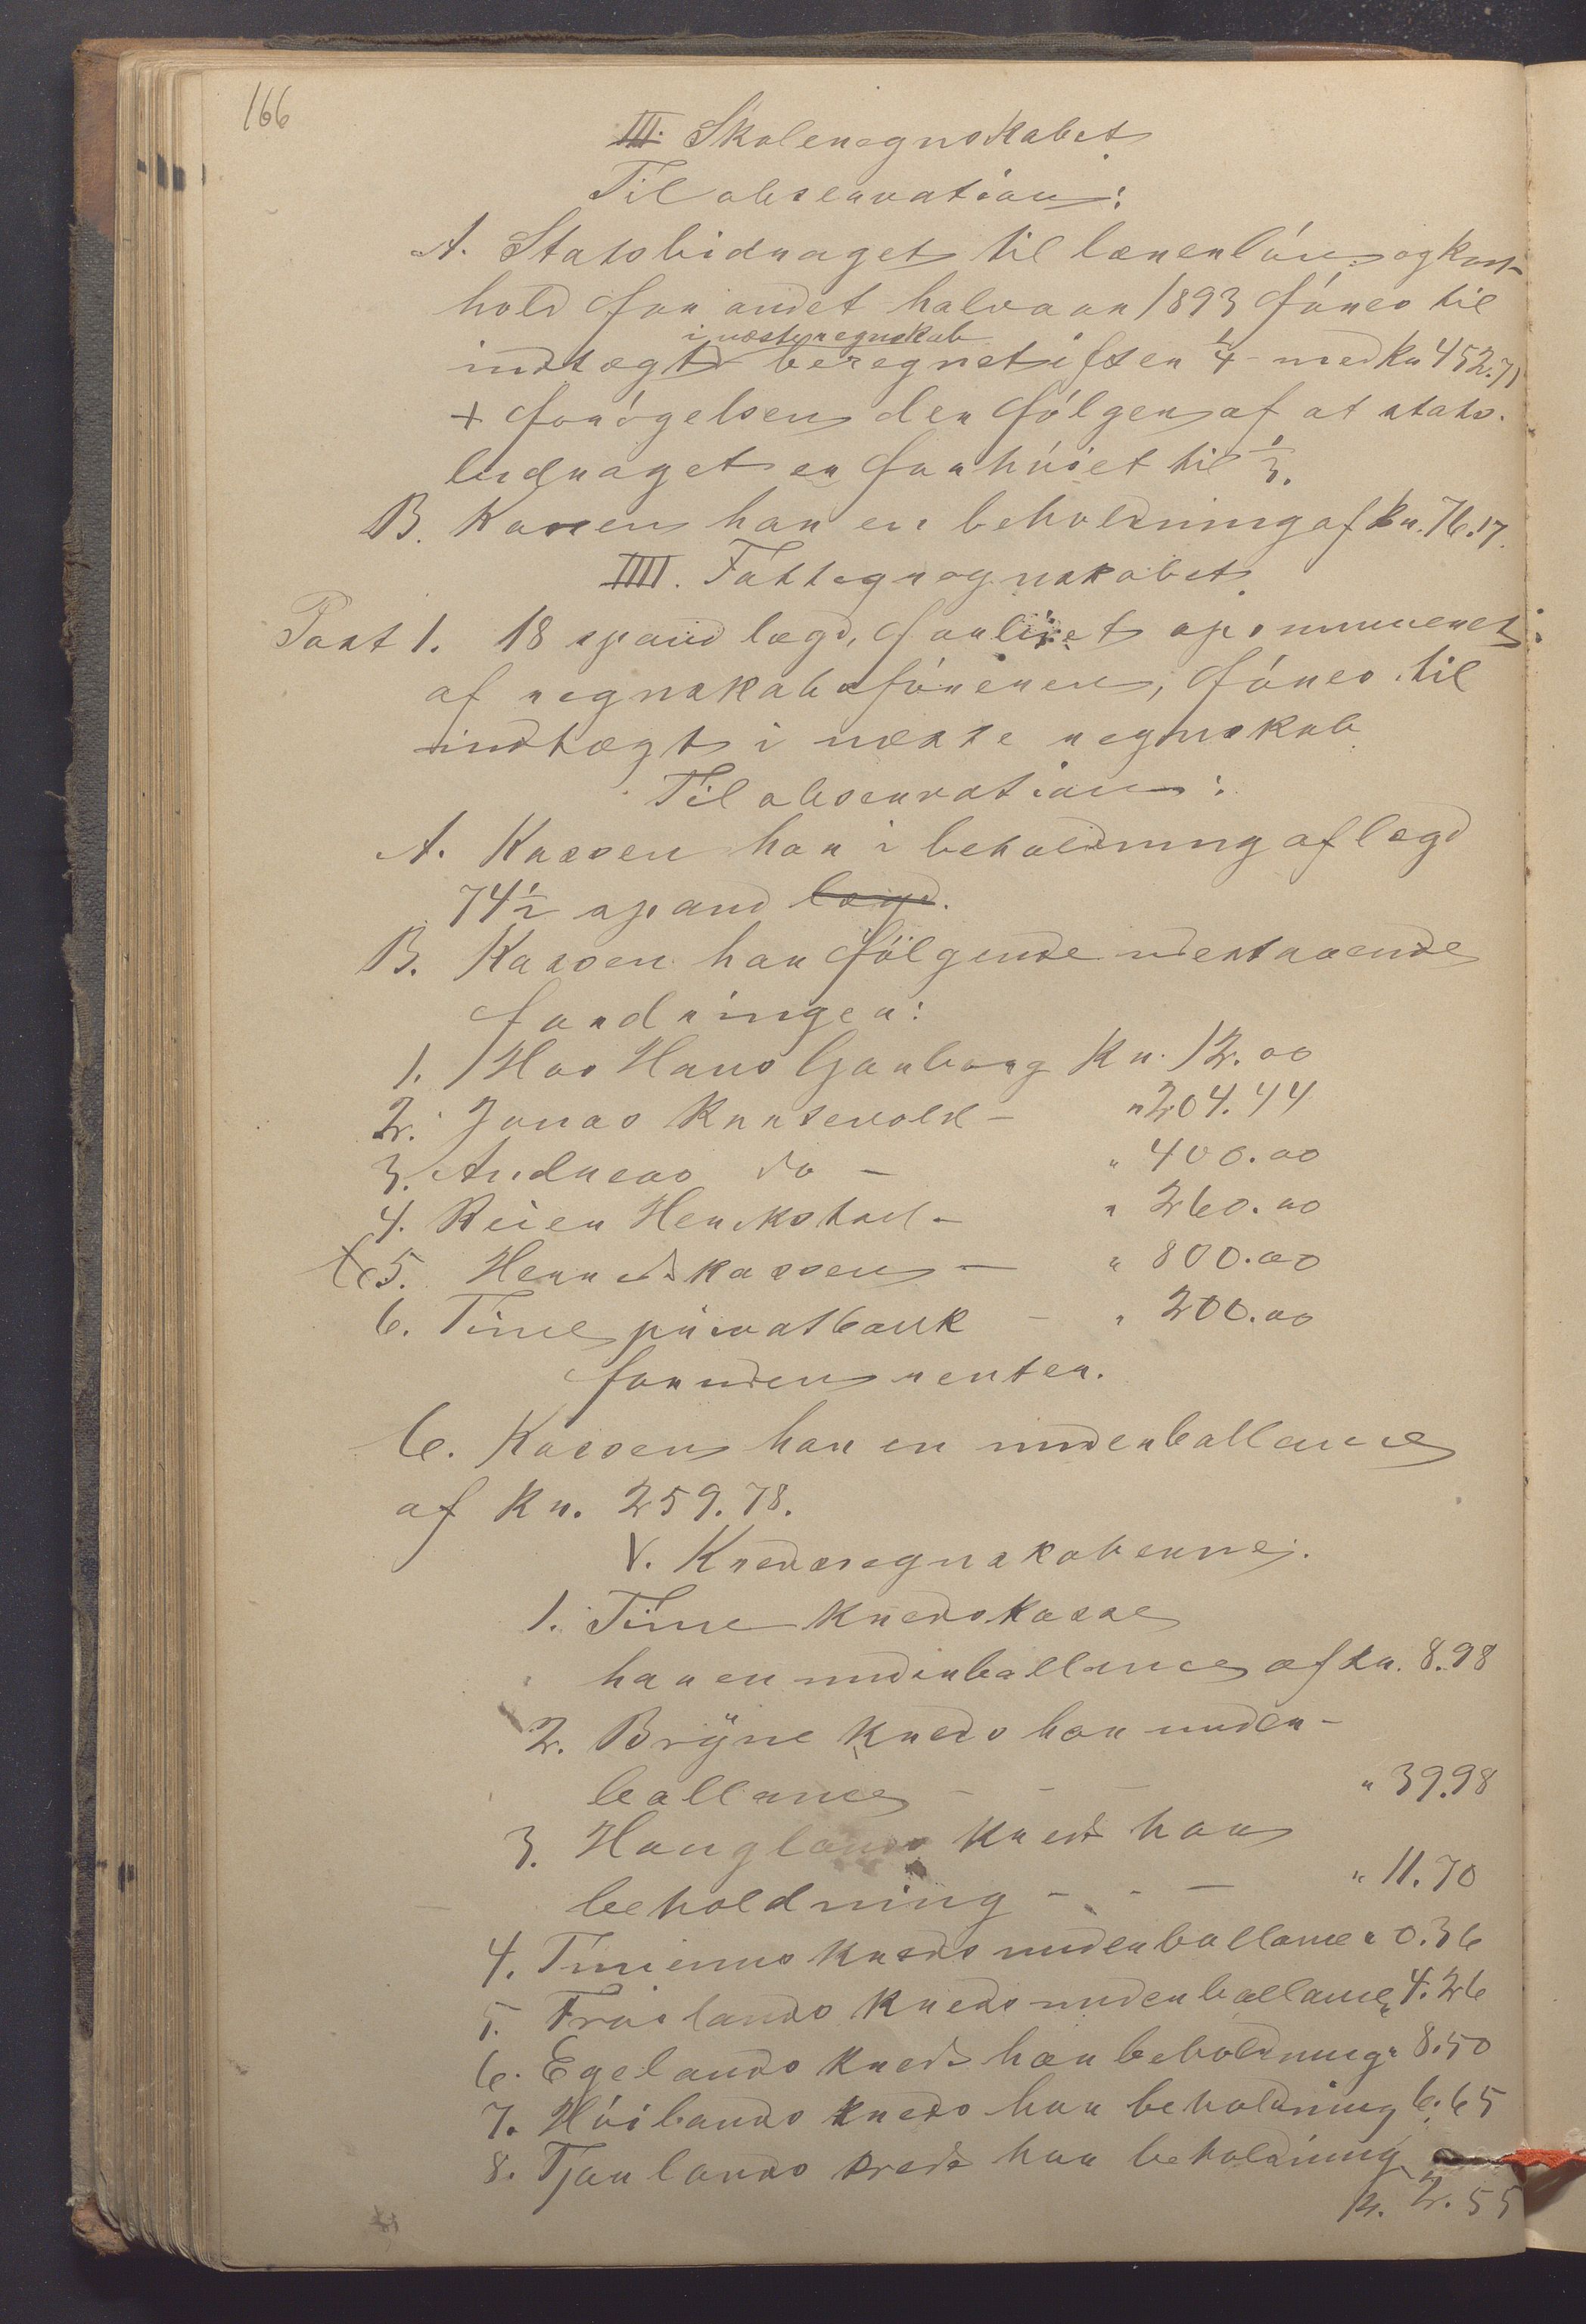 166
III. Skoleregnskabet
Til observation:
A. Statsbidraget til lærerløn og kost-
hold for andet halvaar 1893 föres til
i næste regnskab
indtægt beregnet ifsen 1/4 med kr 452.71
+ forögelsen der fölger af at stats-
bidraget er forhöiet til 1/3.
B. Kassen har en beholdning af kr. 76.17.
IIII. Fattegregnskabet
Post 1. 18 spand lægd, forlixet opsummeret
af regnskabsföreren, föres til
indtægt i næste regnskab
Til observation:
A. Kassen har i beholdning af lægd
74 1/2 spand lægd.
B. Kassen har fölgende udestaaende
fordringer:
1. Hos Hans Garborg Kr. 12.00
2. Jonas Knutsvold - " 204.44
3. Andreas do - " 400.00
4. Reier Herikstad - " 260.00
5. Herredskassen - " 800.00
6. Time privatbank - " 200.00
foruden renter.
C. Kassen har en underballance
af Kr. 259.78.
V. Kredsregnskaberne.
1. Time Kredskasse
har en underballance af kr. 8.98
2. Bryne kreds har under-
ballance - - - " 39.98
3. Hauglands kreds har
beholdning - - - " 11.70
4. Tunems kreds underballance " 0.36
5. Fröilands kreds underballance " 4.26
6. Egelands kreds har beholdning " 8.50
7. Höilands kreds har beholdning 6.65
8. Tjaalands kreds har beholdning
kr. 2.55